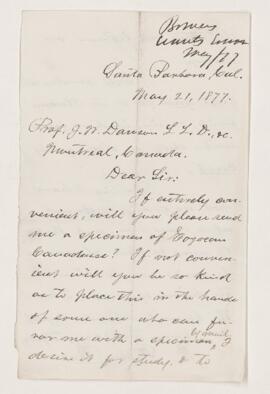 Bowers
wants Eozoon
May/77
Santa Barbara, Cal.
May 21, 1877.
Prof. J. W. Dawson L. L. D., &c.
Montreal, Canada.
Dear Sir:
If entirely con-
venient, will you please send
me a specimen of Eozocon
Canadense? If not conven-
ient will you be so kind
as to place this in the hands
of some one who can fa-
vor me with a specimen, by mail, I
desire it for study, & to